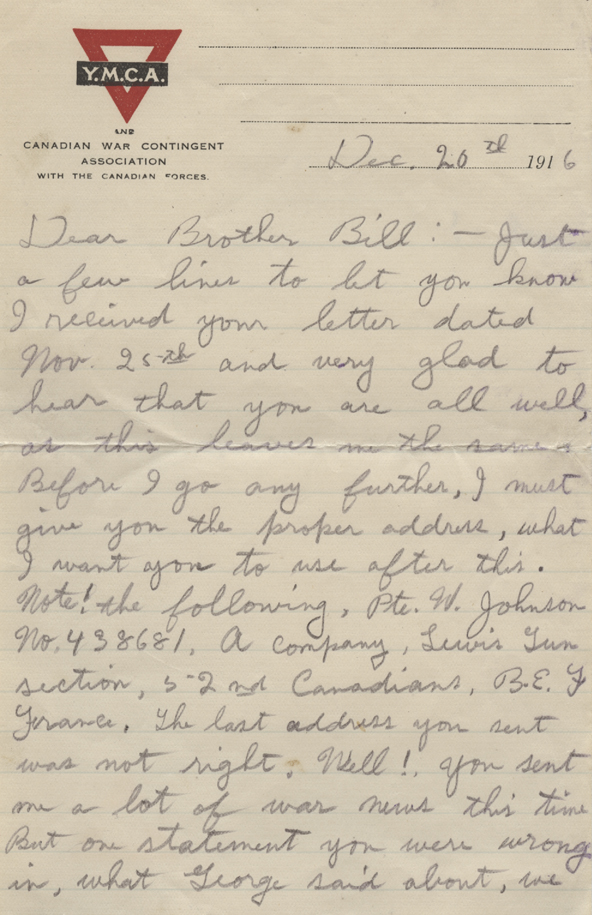 Y.M.C.A.
AND
CANADIAN WAR CONTINGENT
ASSOCIATION
WITH THE CANADIAN FORCES.
Dec. 20th 1916
Dear Brother Bill:— Just
a few lines to let you know
I received your letter dated
Nov. 25th and very glad to
hear that you are all well,
as this leaves me the same
Before I go any further, I must
give you the proper address, what
I want you to use after this.
Note! the following, Pte. W. Johnson
No. 438681, A company, Lewis Gun
section, 52nd Canadians, B.E.F
France. The last address you sent
was not right. Well!, you sent
me a lot of war news this time
But one statement you were wrong
in, what George said about, we